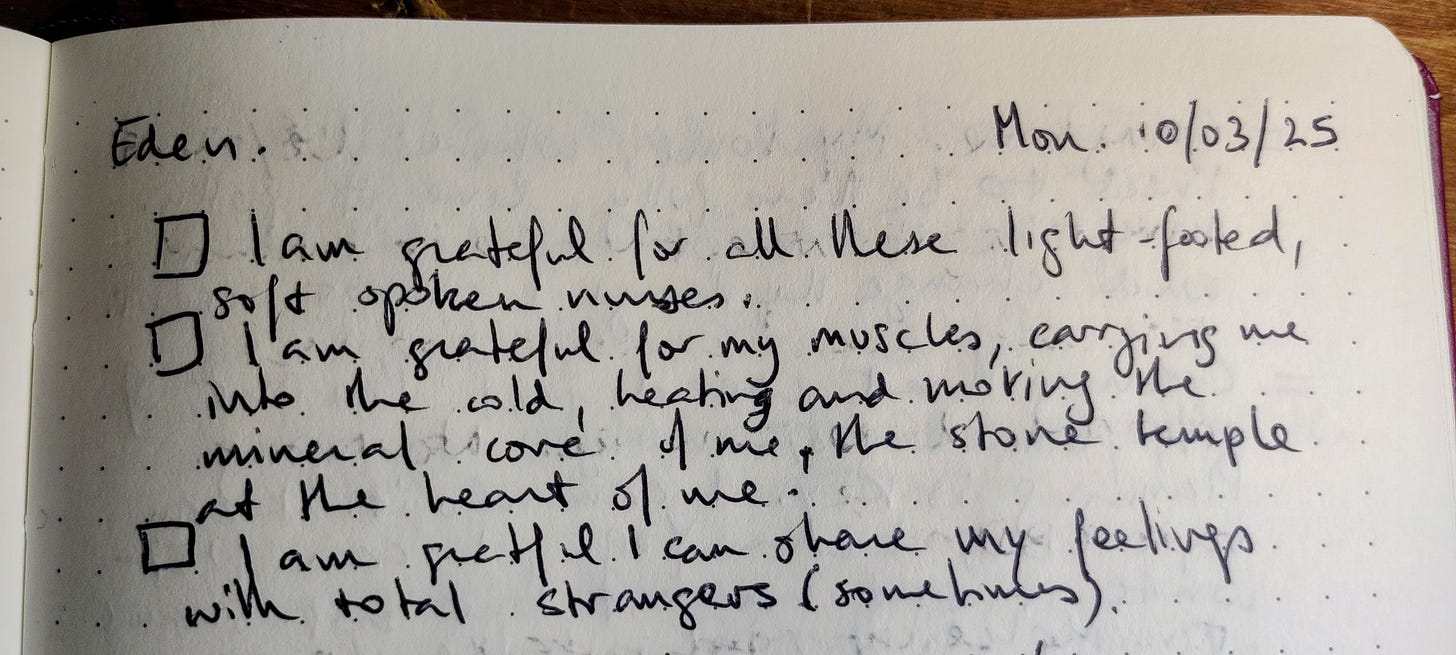 Eden.
Mon. 10/03/25
I am grateful for all these light-footed,
soft spoken nurses.
I am grateful for my muscles, carrying me
into the cold, heating and moving the
mineral core of me, the stone temple
at the heart of me.
I am grateful I can share my feelings
with total strangers (sometimes).